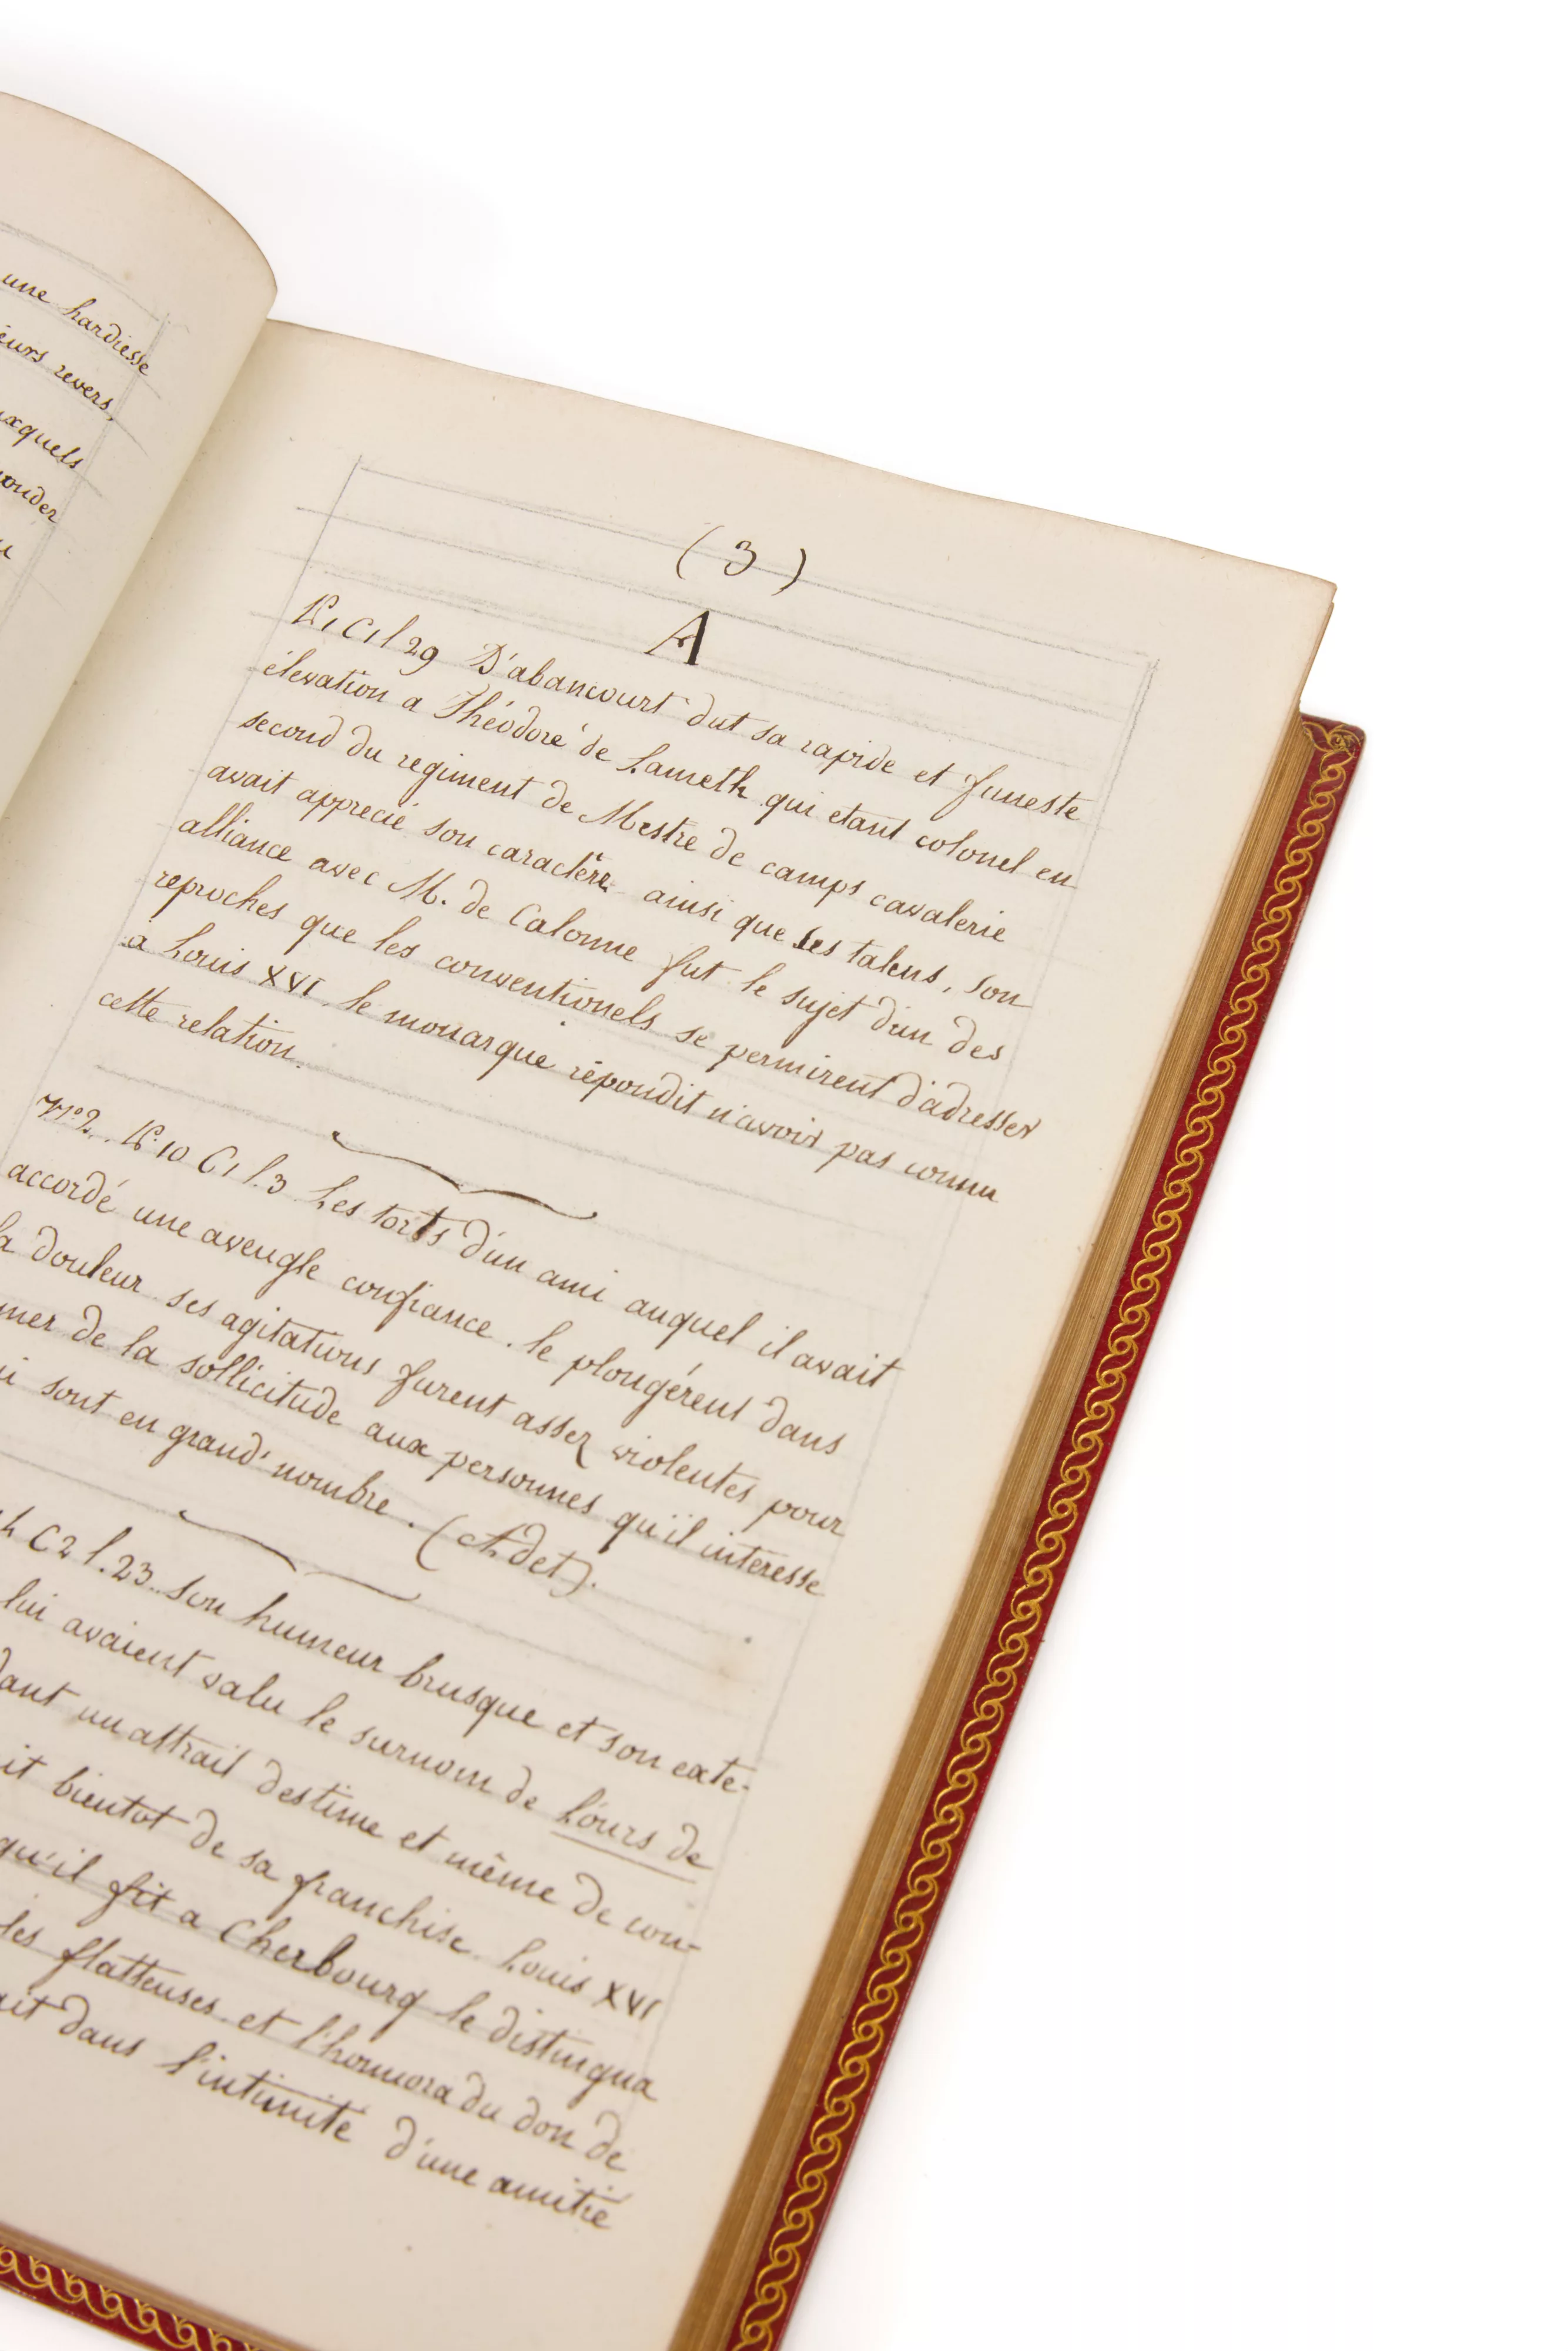 une hardiesse
eurs revers,
xquels
onder
( 3 )
A
P.1 C1 l 29 D'abancourt dut sa rapide et funeste
élevation a Théodore de Lameth qui etant colonel en
second du regiment de Mestre de camps cavalerie
avait apprecié son caractère ainsi que ses talens, son
alliance avec M. de Calonne fut le sujet d'un des
reproches que les conventionels se permirent d'adresser
a Louis XVI. le monarque répondit n'avoir pas connu
cette relation.
No2. P.10 C1 l.3 Les torts d'un ami auquel il avait
accordé une aveugle confiance. le plongérent dans
la douleur ses agitations furent assez violentes pour
mer de la sollicitude aux personnes qu'il interesse
i sont en grand nombre. (Adet).
C2 l.23. Son humeur brusque et son exte-
lui avaient valu le surnom de L'ours de
dant un attrait d'estime et même de con-
it bientot de sa franchise. Louis XVI
qu'il fit a Cherbourg le distingua
les flatteuses et l'honnora du don de
ait dans l'intimité d'une amitié